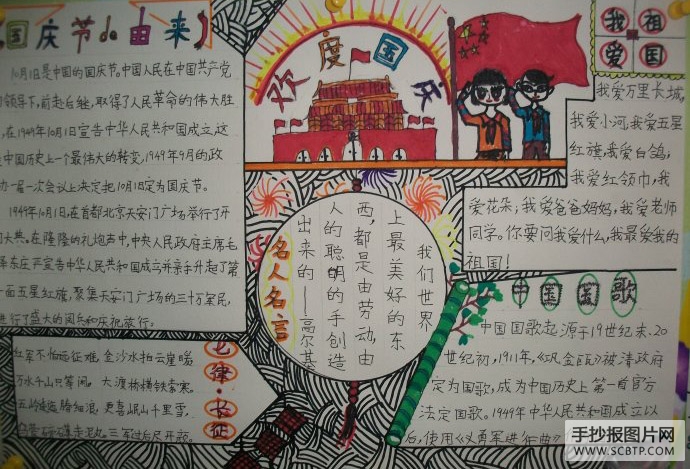 国庆节的由来
10月1日是中国的国庆节。中国人民在中国共产党
领导下,前赴后继,取得了人民革命的伟大胜
,在1949年10月1日宣告中华人民共和国成立这
中国历史上一个最伟大的转变,1949年9月的政
一届一次会议上决定把10月1日定为国庆节。
1949年10月1日,在首都北京天安门广场举行了开
大典。在隆隆的礼炮声中,中央人民政府主席毛
泽东庄严宣告中华人民共和国成立并亲手升起了第
一面五星红旗,聚集天安门广场的三十万军民,
进行了盛大的阅兵和庆祝旅行。
欢度国庆
我祖
爱国
我爱万里长城,
我爱小河,我爱五星
红旗,我爱白鸽;
我爱红领巾,我
爱花朵;我爱爸爸妈妈,我爱老师
同学。你要问我爱什么,我最爱我的
祖国!
我们世界
上最美好的东
西,都是由劳动,由
人的聪明的手创造
出来的——高尔基
名人名言
七律·长征
红军不怕远征难,
金沙水拍云崖暖
万水千山只等闲。
大渡桥横铁索寒。
五岭逶迤腾细浪,
更喜岷山千里雪,
三军过后尽开颜。
中国国歌
中国国歌起源于19世纪末、20
世纪初,1911年,《巩金瓯》被清政府
定为国歌,成为中国历史上第一首官方
法定国歌。1949年中华人民共和国成立以
后,使用《义勇军进行曲》
手抄报图片网
WWW.SCBTP.COM